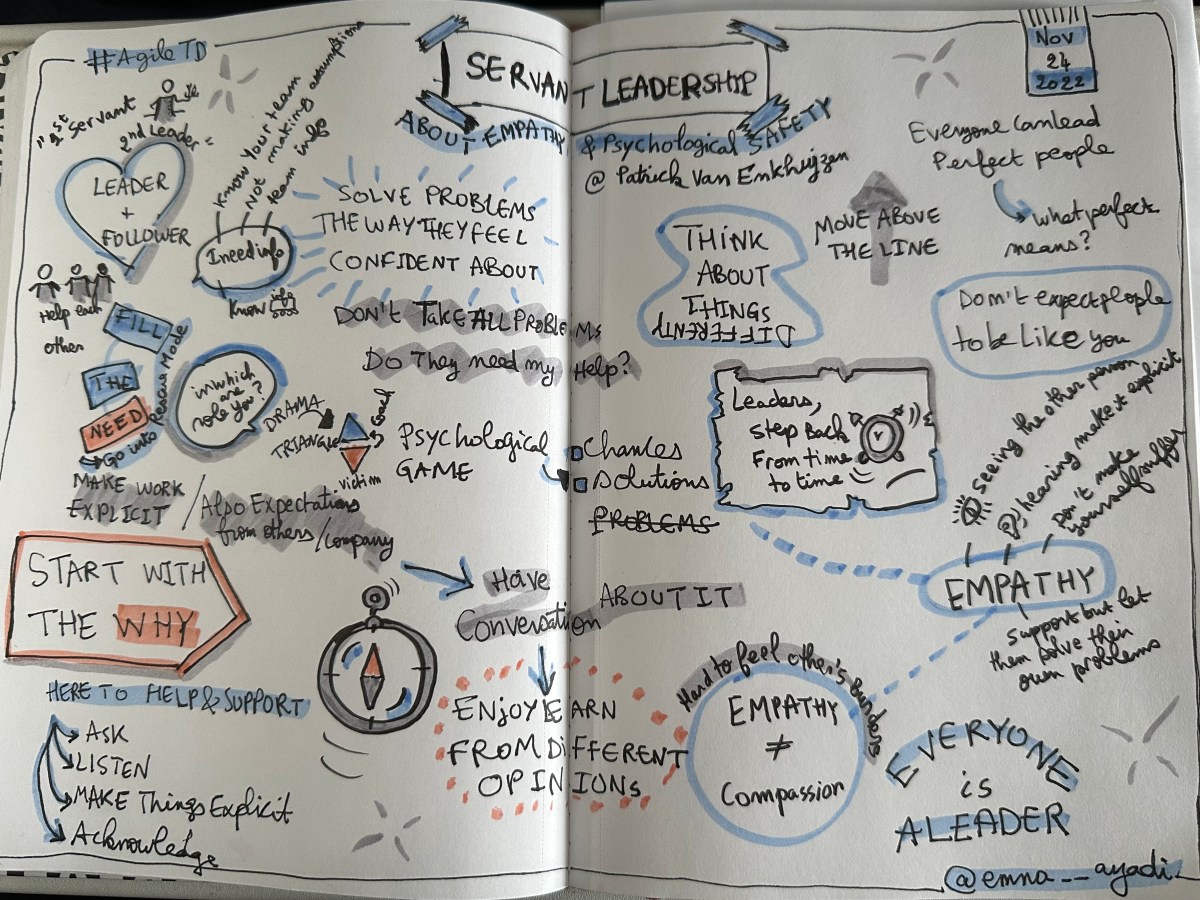 #AgileTD
SERVANT LEADERSHIP
ABOUT EMPATHY & Psychological SAFETY
@ Patrick Van Enkhuijzen
Nov
24
2022
"1st Servant
2nd Leader"
LEADER
+
FOLLOWER
Help each
other
Know your team
Not making assumptions
team info
I need info
Know
info
SOLVE PROBLEMS
THE WAY THEY FEEL
CONFIDENT ABOUT
DON'T TAKE ALL PROBLEMS
Do They need my Help?
FILL
THE
NEED
Go into Rescue Mode
in which
role are
you?
DRAMA
TRIANGLE
Coach
victim
Psychological
GAME
Chances
Solutions
PROBLEMS
MAKE WORK
EXPLICIT / Also Expectations
from others/company
START WITH
THE WHY
Have
Conversation ABOUT IT
ENJOY LEARN
FROM DIFFERENT
OPINIONS
HERE TO HELP & SUPPORT
ASK
LISTEN
MAKE Things Explicit
Acknowledge
THINK
ABOUT
THINGS
DIFFERENTLY
MOVE ABOVE
THE LINE
Everyone Can lead
Perfect people
what perfect
means?
Don't expect people
to be Like you
Leaders,
Step Back
From time
to time
Seeing the other person
hearing make it explicit
Don't make
yourself suffer
EMPATHY
Support but let
them solve their
own problems
Hard to feel other's Burdens
EMPATHY
≠
Compassion
EVERYONE
is
A LEADER
@emna__ayadi